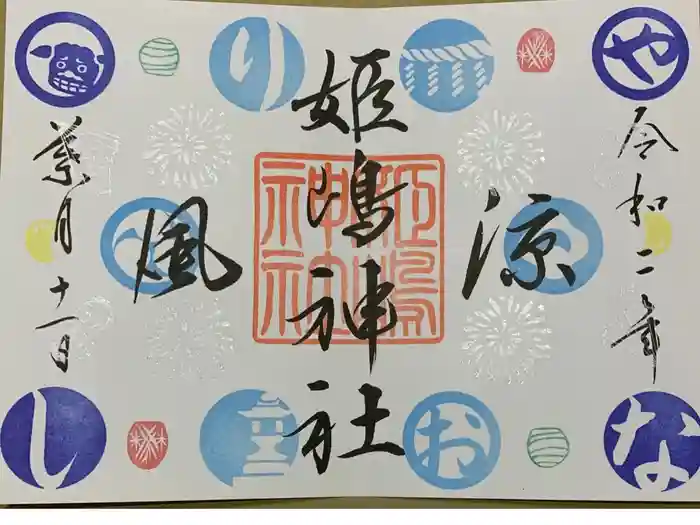 令和二年
や
な
涼
お
姫嶋神社
姫嶋神社
り
風
葉月十一日
し